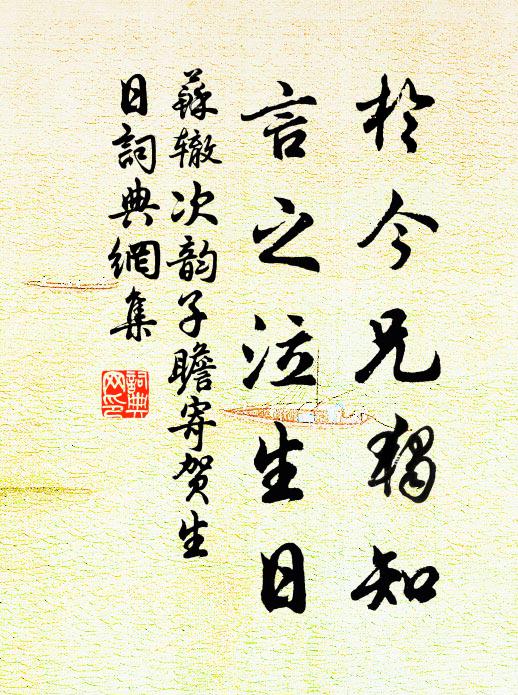 於今兄獨知
言之泣生日
蘇辙次韵子瞻寄贺生
日詞典網集
詞典
网印